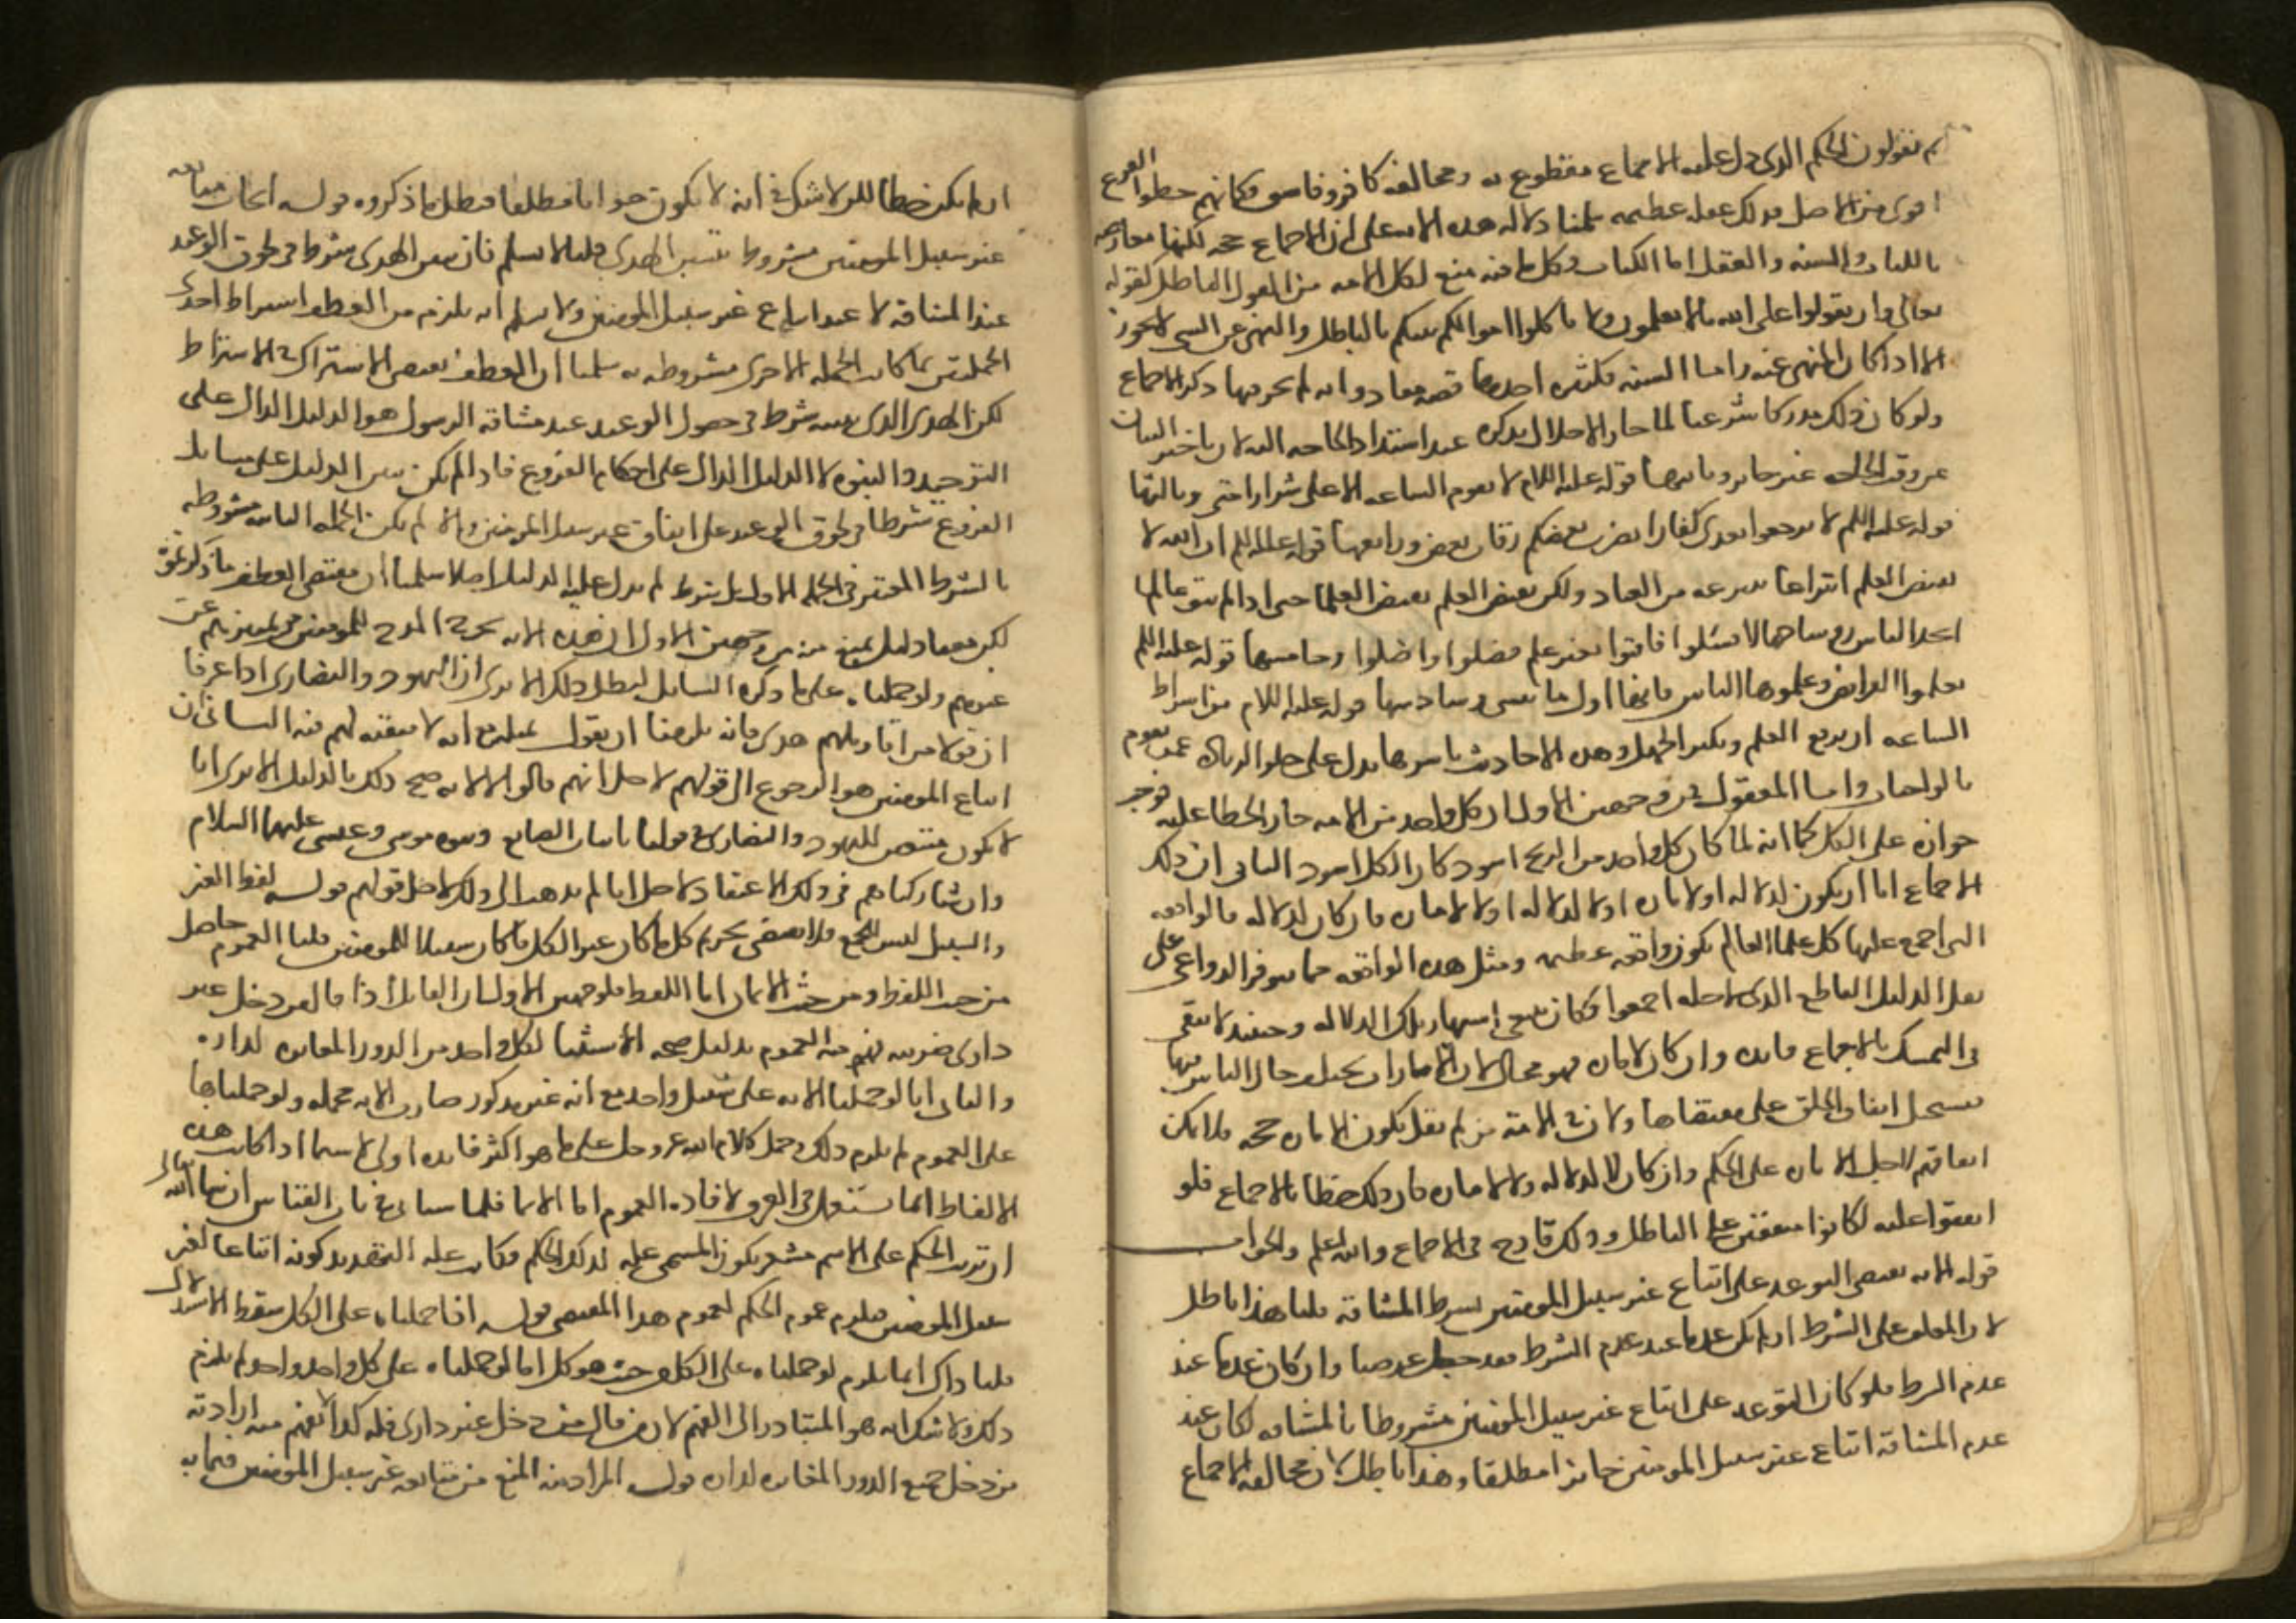 ثم تقولون الحكم الذي دل عليه الاجماع مقطوع به ومخالفه كافر وفاسق فكانهم جعلوا الفرع
اقوى من الاصل وذلك غفلة عظيمه سلمنا دلاله هذه الايه على ان الاجماع حجه لكنها معارضه
بالكتاب والسنه والعقل اما الكتاب فكل ما فيه منع لكل الامه من القول الباطل كقوله
تعالى وان تقولوا على الله ما لا تعلمون ولا تاكلوا اموالكم بينكم بالباطل والنهي عن الشي لا يجوز
الا اذا كان المنهي عنه واما السنه فكثيره احدها قصه معاذ وانه لم يجر فيها ذكر الاجماع
ولو كان ذلك مدركا شرعيا لما جاز الاخلال بذكره عند اشتداد الحاجه اليه لان تاخير البيان
عن وقت الحاجه غير جايز وثانيها قوله عليه السلام لا تقوم الساعه الا على شرار امتي وثالثها
قوله عليه السلم لا ترجعوا بعدي كفارا يضرب بعضكم رقاب بعض ورابعها قوله عليه السلم ان الله لا
يقبض العلم انتزاعا ينتزعه من العباد ولكن يقبض العلم بقبض العلما حتى اذا لم يبق عالما
اتخذ الناس روسا جهالا فسئلوا فافتوا بغير علم فضلوا واضلوا وخامسها قوله عليه السلم
تعلموا الفرايض وعلموها الناس فانها اول ما ينسى وسادسها قوله عليه السلام من اشراط
الساعه ان يرتفع العلم ويكثر الجهل وهذه الاحاديث باسرها تدل على خلو الزمان عمن يقوم
بالواجبات واما المعقول فمن وجهين الاول ان كل واحد من الامه جاز الخطا عليه فوجب
جوازه على الكل كما انه لما كان كل واحد من الزنج اسود كان الكل اسود الثاني ان ذلك
الاجماع اما ان يكون لدلاله او لاماره او لا لدلاله ولا لاماره فان كان لدلاله فالواقعه
التي اجمع عليها كل علما العالم تكون واقعه عظيمه ومثل هذه الواقعه مما تتوفر الدواعي على
نقل الدليل القاطع الذي لاجله اجمعوا فكان ينبغي اشتهار تلك الدلاله وحينئذ لا يبقى
في التمسك بالاجماع فايده وان كان لاماره فهو محال لان الامارات يختلف حال الناس فيها
فيستحيل اتفاق الخلق على مقتضاها ولان في الامه من لم يقل بكون الاماره حجه فلا يمكن
اتفاقهم لاجل الاماره على الحكم وان كان لا لدلاله ولا لاماره كان ذلك خطا بالاجماع فلو
اتفقوا عليه لكانوا متفقين على الباطل وذلك قادح في الاجماع والله اعلم والجواب
قوله الايه تقتضي التوعد على اتباع غير سبيل المومنين بشرط المشاقه قلنا هذا باطل
لان المعلق على الشرط ان لم يكن عدما عند عدم الشرط فقد حصل غرضنا وان كان عدما عند
عدم الشرط فلو كان التوعد على اتباع غير سبيل المومنين مشروطا بالمشاقه لكان عند
عدم المشاقه اتباع غير سبيل المومنين جائزا مطلقا وهذا باطل لان مخالفه الاجماع
ان لم يكن خطا لكن لا شك في انه لا يكون صوابا مطلقا فبطل ما ذكروه قوله اتحاد متابعه
غير سبيل المومنين مشروط بتبين الهدى قلنا لا نسلم فان تبين الهدى شرط في لحوق الوعيد
عند المشاقه لا عند اتباع غير سبيل المومنين ولا نسلم انه يلزم من العطف اشتراط احدى
الجملتين بما كانت الجمله الاخرى مشروطه به سلمنا ان العطف يقتضي الاشتراك في الاشتراط
لكن الهدى الذي تبينه شرط في حصول الوعيد عند مشاقه الرسول هو الدليل الدال على
التوحيد والنبوه لا الدليل الدال على احكام الفروع فاذا لم يكن تبين الدليل على مسايل
الفروع شرطا في لحوق الوعيد على اتباع غير سبيل المومنين والا لم تكن الجمله الثانيه مشروطه
بالشرط المعتبر في الجمله الاولى بل بشرط لم يدل عليه الدليل اصلا سلمنا ان مقتضى العطف ما ذكرتموه
لكن معنا دليل يمنع منه من وجهين الاول ان هذه الايه خرجت المدح للمومنين وتمييزهم عن
غيرهم ولو حملناه على ما ذكره السايل لبطل ذلك الا ترى ان اليهود والنصارى اذا عرفنا
ان قولا من اقاويلهم هدى فانه يلزمنا ان نقول بمثله مع انه لا تبعيه لهم فيه الثاني ان
اتباع المومنين هو الرجوع الى قولهم لاجل انهم قالوه لا لانه صح ذلك بالدليل الا ترى انا
لا نكون متبعين لليهود والنصارى في قولنا باثبات الصانع ونبوه موسى وعيسى عليهما السلام
وان شاركناهم في ذلك الاعتقاد لاجل انا لم نذهب الى ذلك لاجل قولهم قوله لفظ الغير
والسبيل ليس للجمع فلا يقتضي تحريم كل ما كان غير الكل ما كان سبيلا للمومنين قلنا العموم حاصل
من حيث اللفظ ومن حيث الايما اما اللفظ فلوجهين الاول ان القايل اذا قال من دخل غير
داري ضربته فهم منه العموم بدليل صحه الاستثنا لكل واحد من الدور المغايره لداره
والثاني انا لو حملنا الايه على سبيل واحد مع انه غير مذكور صارت الايه مجمله ولو حملناها
على العموم لم يلزم ذلك وحمل كلام الله عز وجل على ما هو اكثر فايده اولى لا سيما اذا كانت هذه
الالفاظ انما تستعمل في العرف لافاده العموم اما الايما فلما سياتي في باب القياس ان شا الله تعالى
ان ترتيب الحكم على الاسم مشعر بكون المسمى علة لذلك الحكم فكانت علة التهديد كونه اتباعا لغير
سبيل المومنين فيلزم عموم الحكم لعموم هذا المقتضي قوله اذا حملناه على الكل سقط الاستدلال
قلنا ذاك انما يلزم لو حملناه على الكل من حيث هو كل اما لو حملناه على كل واحد واحد لم يلزم
ذلك ولا شك انه هو المتبادر الى الفهم لان من قال من دخل غير داري فله كذا لا يفهم منه ارادته
من دخل جميع الدور المغايره لداره قوله المراد منه المنع من متابعه غير سبيل المومنين فيما به